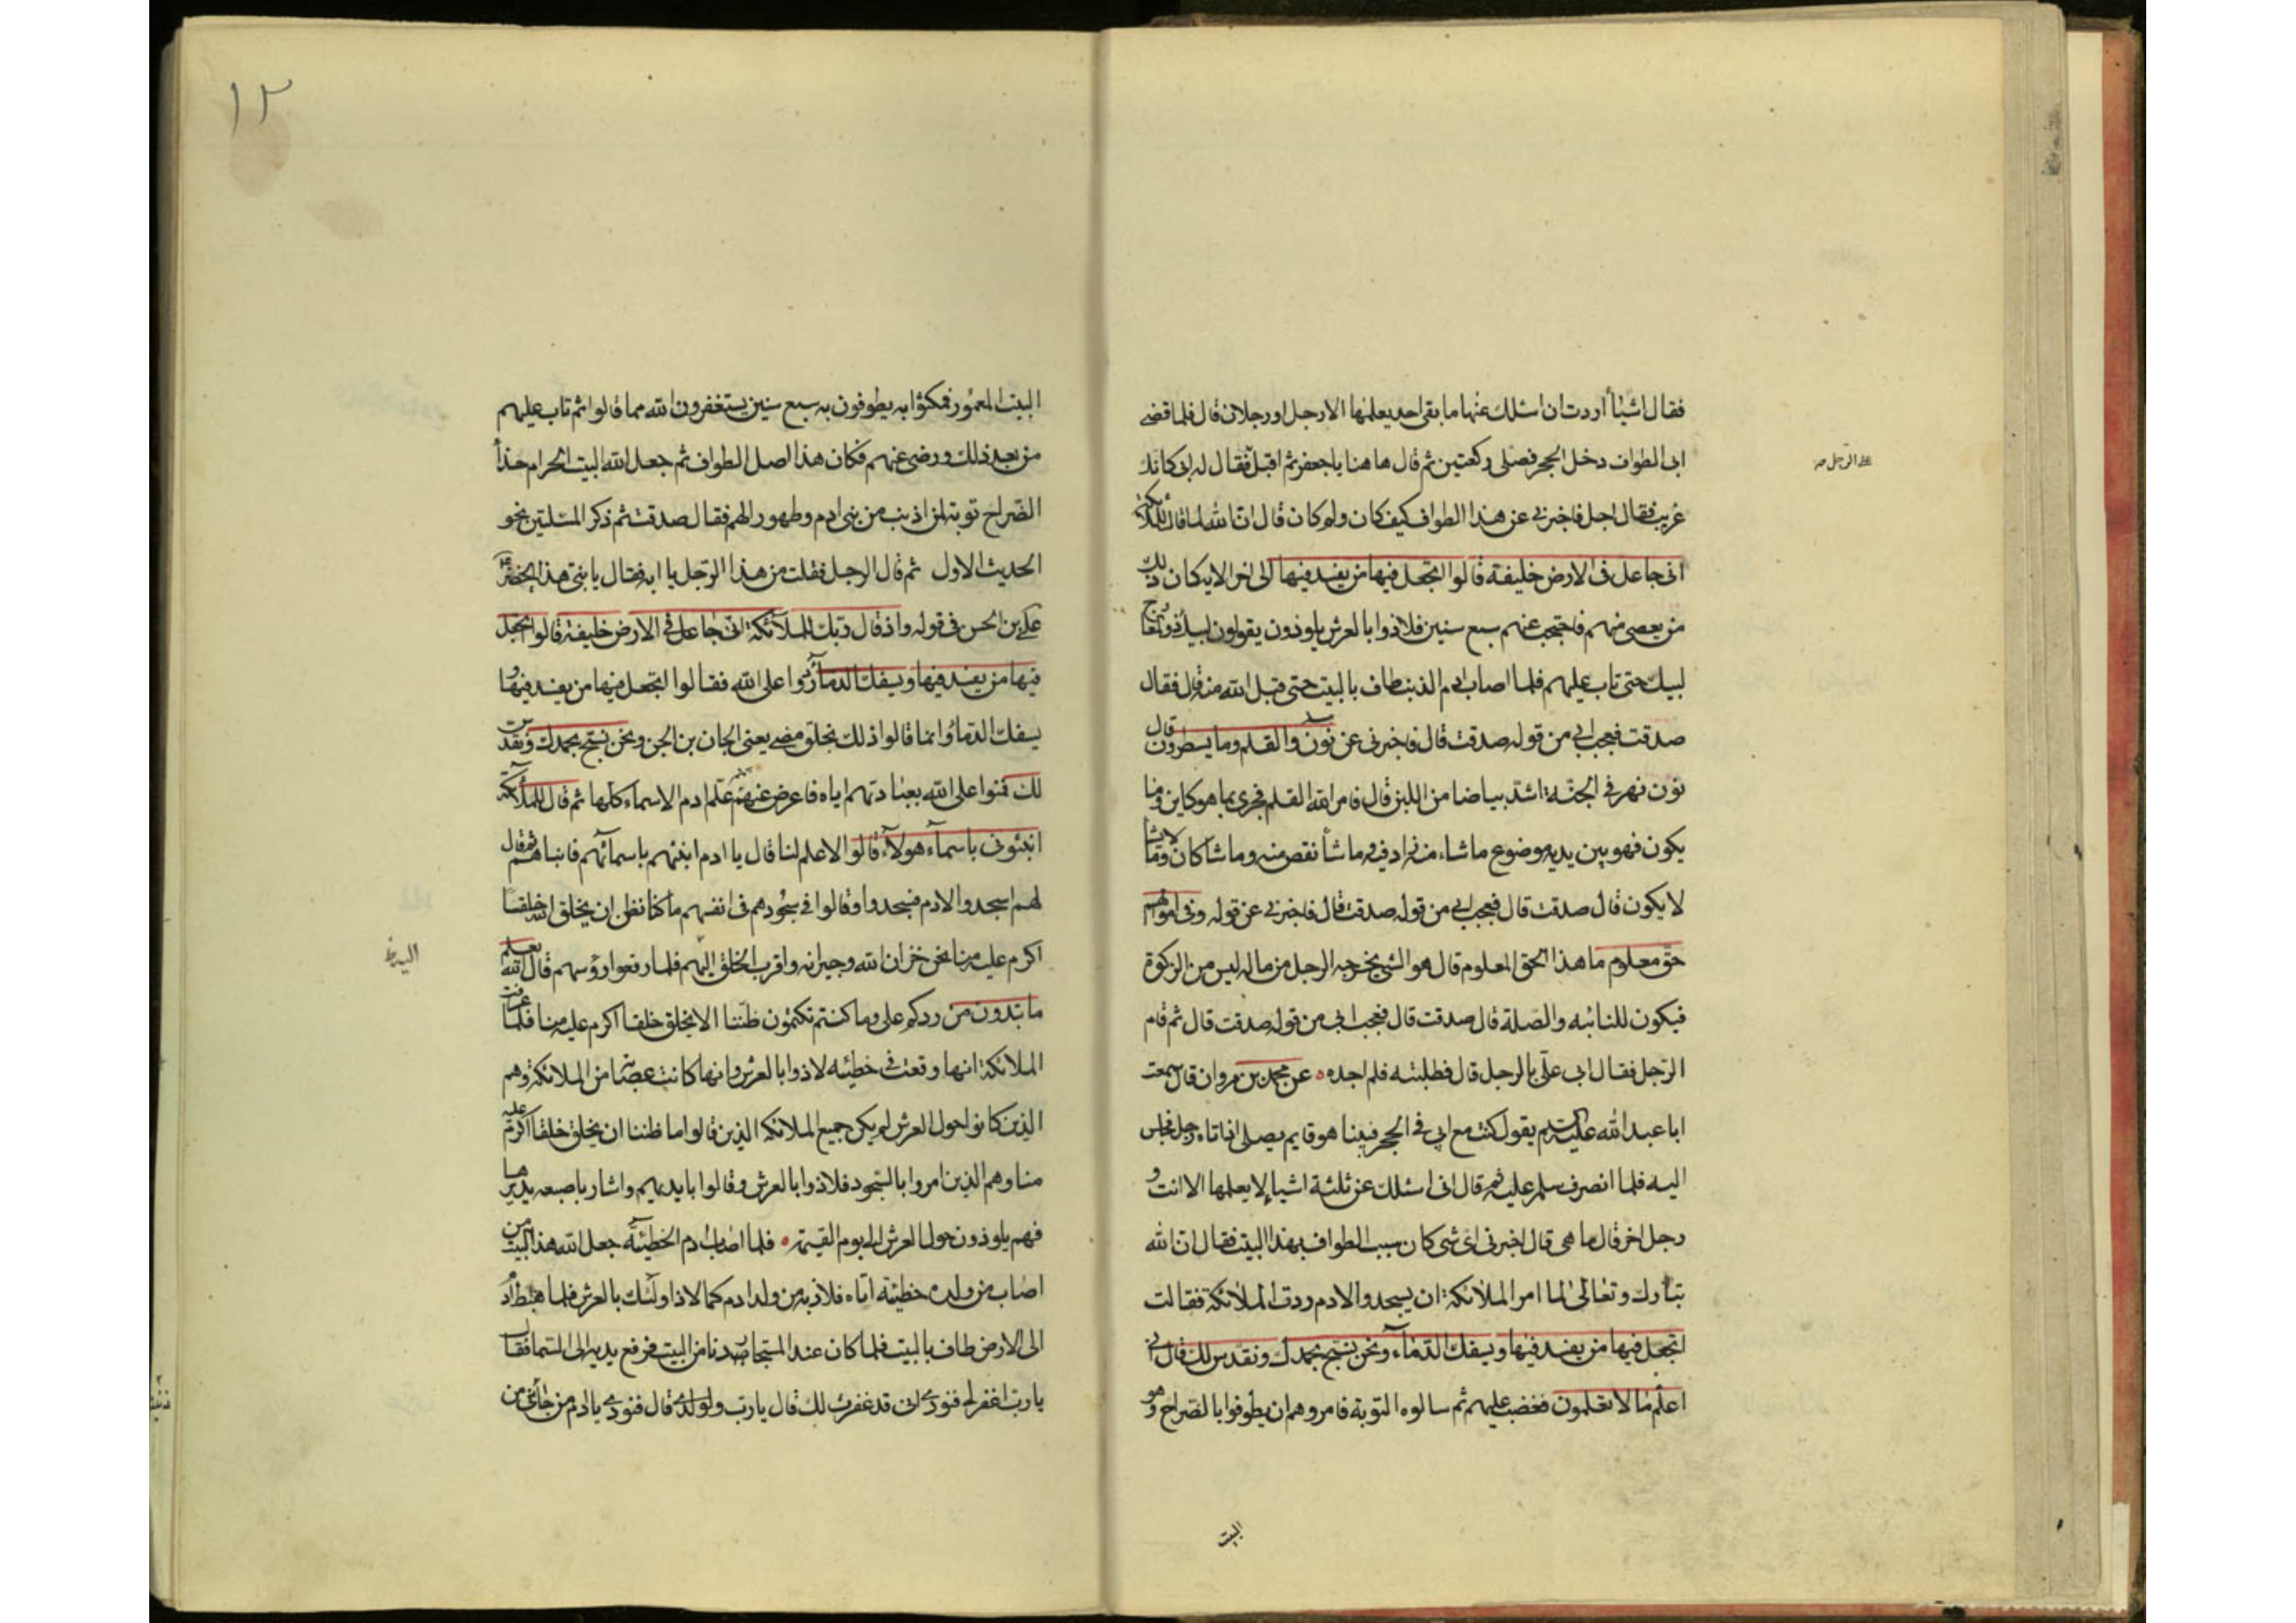 فقال اشياأ اردت ان اسئلك عنها ما بقى احد يعلمها الا رجل او رجلان قال فلما قضى
ابى الطواف دخل الحجر فصلى ركعتين ثم قال هاهنا يا جعفر ثم اقبل فقال له ابى كانك
على الرجل صه
غريب فقال اجل فاخبرنى عن هذا الطواف كيف كان ولم كان قال ان الله لما قال للملائكة
انى جاعل فى الارض خليفة قالوا اتجعل فيها من يفسد فيها الى اخر الاية كان ذلك
من يعصى منهم فاحتجب عنهم سبع سنين فلاذوا بالعرش يلوذون يقولون لبيك ذو المعارج
لبيك حتى تاب عليهم فلما اصاب ادم الذنب طاف بالبيت حتى قبل الله منه قال فقال
صدقت فعجب ابى من قوله صدقت قال فاخبرنى عن نون والقلم وما يسطرون قال
نون نهر فى الجنة اشد بياضا من اللبن قال فامر الله القلم فجرى بما هو كاين وما
يكون فهو بين يديه موضوع ما شاء منه زاد فيه وما شأ نقص منه وما شا كان وما لا يشا
لا يكون قال صدقت قال فعجب ابى من قوله صدقت قال فاخبرنى عن قوله وفى اموالهم
حق معلوم ما هذا الحق المعلوم قال هو الشى يخرجه الرجل من ماله ليس من الزكوة
فيكون للنائبه والصلة قال صدقت قال فعجب ابى من قوله صدقت قال ثم قام
الرجل فقال ابى على بالرجل قال فطلبته فلم اجده عن محمد بن مروان قال سمعت
ابا عبد الله عليه السلم يقول كنت مع ابى فى الحجر فبينا هو قايم يصلى اذ اتاه رجل فجلس
اليه فلما انصرف سلم عليه ثم قال انى اسئلك عن ثلثة اشيا لا يعلمها الا انت و
رجل اخر قال ما هى قال اخبرنى اى شى كان سبب الطواف بهذا البيت فقال ان الله
تبارك وتعالى لما امر الملائكة ان يسجدوا لادم ردت الملائكة فقالت
اتجعل فيها من يفسد فيها ويسفك الدماء ونحن نسبح بحمدك ونقدس لك قال انى
اعلم ما لا تعلمون فغضب عليهم ثم سالوه التوبة فامروهم ان يطوفوا بالضراح وهو
البيت
١٢
البيت المعمور فمكثوا به يطوفون به سبع سنين يستغفرون الله مما قالوا ثم تاب عليهم
من بعد ذلك ورضى عنهم فكان هذا اصل الطواف ثم جعل الله البيت الحرام حذأ
الضراح توبة لمن اذنب من بنى ادم وطهور الهم فقال صدقت ثم ذكر المسئلتين نحو
الحديث الاول ثم قال الرجل فقلت من هذا الرجل يا ابه فقال يا بنى هذا الخضر
على بن الحسن فى قوله واذ قال ربك للملائكة انى جاعل فى الارض خليفة قالوا اتجعل
فيها من يفسد فيها ويسفك الدماء ردوا على الله فقالوا اتجعل فيها من يفسد فيها و
يسفك الدماء وانما قالوا ذلك بخلق مضى يعنى الجان بن الجن ونحن نسبح بحمدك ونقدس
لك فمنوا على الله بعبادتهم اياه فاعرض عنهم ثم علم ادم الاسماء كلها ثم قال للملائكة
انبئونى باسماء هولاء قالوا لا علم لنا قال يا ادم انبئهم باسمائهم فانباهم ثم قال
لهم اسجدوا لادم فسجدوا وقالوا فى سجودهم فى انفسهم ما كنا نظن ان يخلق الله خلقا
اكرم عليه منا نحن خزان الله وجيرانه واقرب الخلق اليهم فلما رفعوا رؤسهم قال الله يعلم
ما تبدون من ردكم على وما كنتم تكتمون ظننا الا يخلق خلقا اكرم عليه منا فلما عرفت
الملائكة انها وقعت فى خطيئه لاذوا بالعرش وانها كانت عصابة من الملائكة وهم
الذين كانوا حول العرش لم يكن جميع الملائكه الذين قالوا ما ظننا ان يخلق خلقا اكرم عليه
منا وهم الذين امروا بالسجود فلاذوا بالعرش وقالوا بايديهم واشار باصبعه يديرها
فهم يلوذون حول العرش الى يوم القيمة فلما اصاب ادم الخطيئة جعل الله هذا البيت لمن
اصاب من ولده خطيئة اتاه فلاذ به من ولد ادم كما لاذ اولئك بالعرش فلما هبط ادم
الى الارض طاف بالبيت فلما كان عند المستجار دنا من البيت فرفع يديه الى السما فقال
يا رب اغفر لى فنودى انى قد غفرت لك قال يا رب ولولدى قال فنودى يا ادم من جائنى من